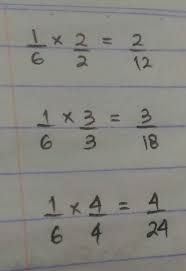 1/6 × 2/2 = 2/12
1/6 × 3/3 = 3/18
1/6 × 4/4 = 4/24